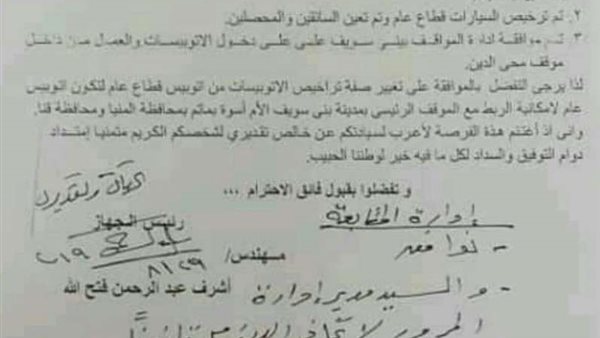 ٢. تم ترخيص السيارات قطاع عام وتم تعين السائقين والمحصلين.
٣. تم موافقة ادارة المواقف ببني سويف على دخول الاتوبيسات والعمال من داخل
موقف محى الدين.
لذا يرجى التفضل بالموافقة على تغيير صفة تراخيص الاتوبيسات من اتوبيس قطاع عام لتكون اتوبيس
عام لامكانية الربط مع الموقف الرئيسى بمدينة بنى سويف الأم أسوة بماتم بمحافظة المنيا ومحافظة قنا.
وانى اذ أغتنم هذه الفرصة لأعرب لسيادتكم عن خالص تقديري لشخصكم الكريم متمنيا إمتداد
دوام التوفيق والسداد لكل ما فيه خير لوطننا الحبيب.
و تفضلوا بقبول فائق الاحترام ،،،
إدارة المتابعة
رئيس الجهاز
مهندس/
٨/٢٩
٢٠١٩
- والسيد مدير إدارة
أشرف عبد الرحمن فتح الله
المرور